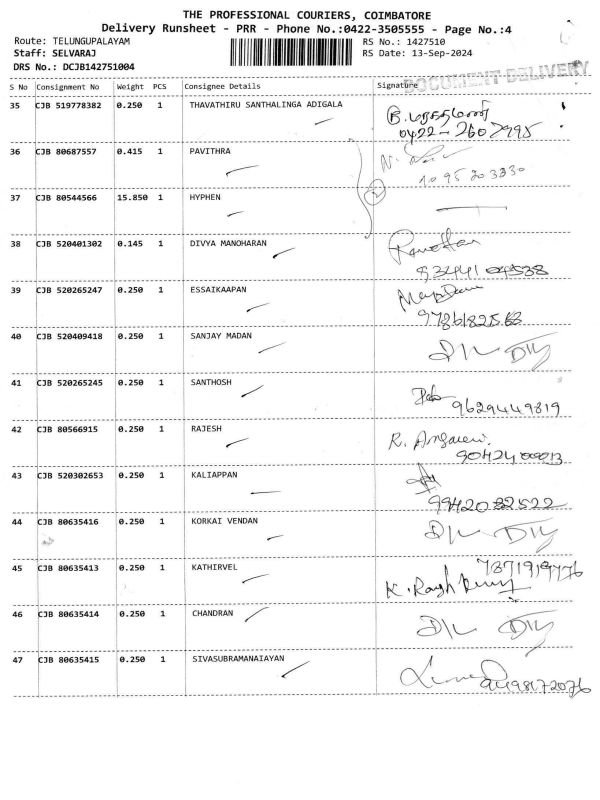 THE PROFESSIONAL COURIERS, COIMBATORE
Delivery Runsheet - PRR - Phone No.:0422-3505555 - Page No.:4
Route: TELUNGUPALAYAM RS No.: 1427510
Staff: SELVARAJ RS Date: 13-Sep-2024
DRS No.: DCJB142751004
DOCUMENT DELIVERY
S No Consignment No Weight PCS Consignee Details Signature
35 CJB 519778382 0.250 1 THAVATHIRU SANTHALINGA ADIGALA
0422-2607995
36 CJB 80687557 0.415 1 PAVITHRA
37 CJB 80544566 15.850 1 HYPHEN
38 CJB 520401302 0.145 1 DIVYA MANOHARAN
39 CJB 520265247 0.250 1 ESSAIKAAPAN
40 CJB 520409418 0.250 1 SANJAY MADAN
41 CJB 520265245 0.250 1 SANTHOSH
9629449819
42 CJB 80566915 0.250 1 RAJESH
43 CJB 520302653 0.250 1 KALIAPPAN
9942082522
44 CJB 80635416 0.250 1 KORKAI VENDAN
45 CJB 80635413 0.250 1 KATHIRVEL
7371919776
46 CJB 80635414 0.250 1 CHANDRAN
47 CJB 80635415 0.250 1 SIVASUBRAMANAIAYAN